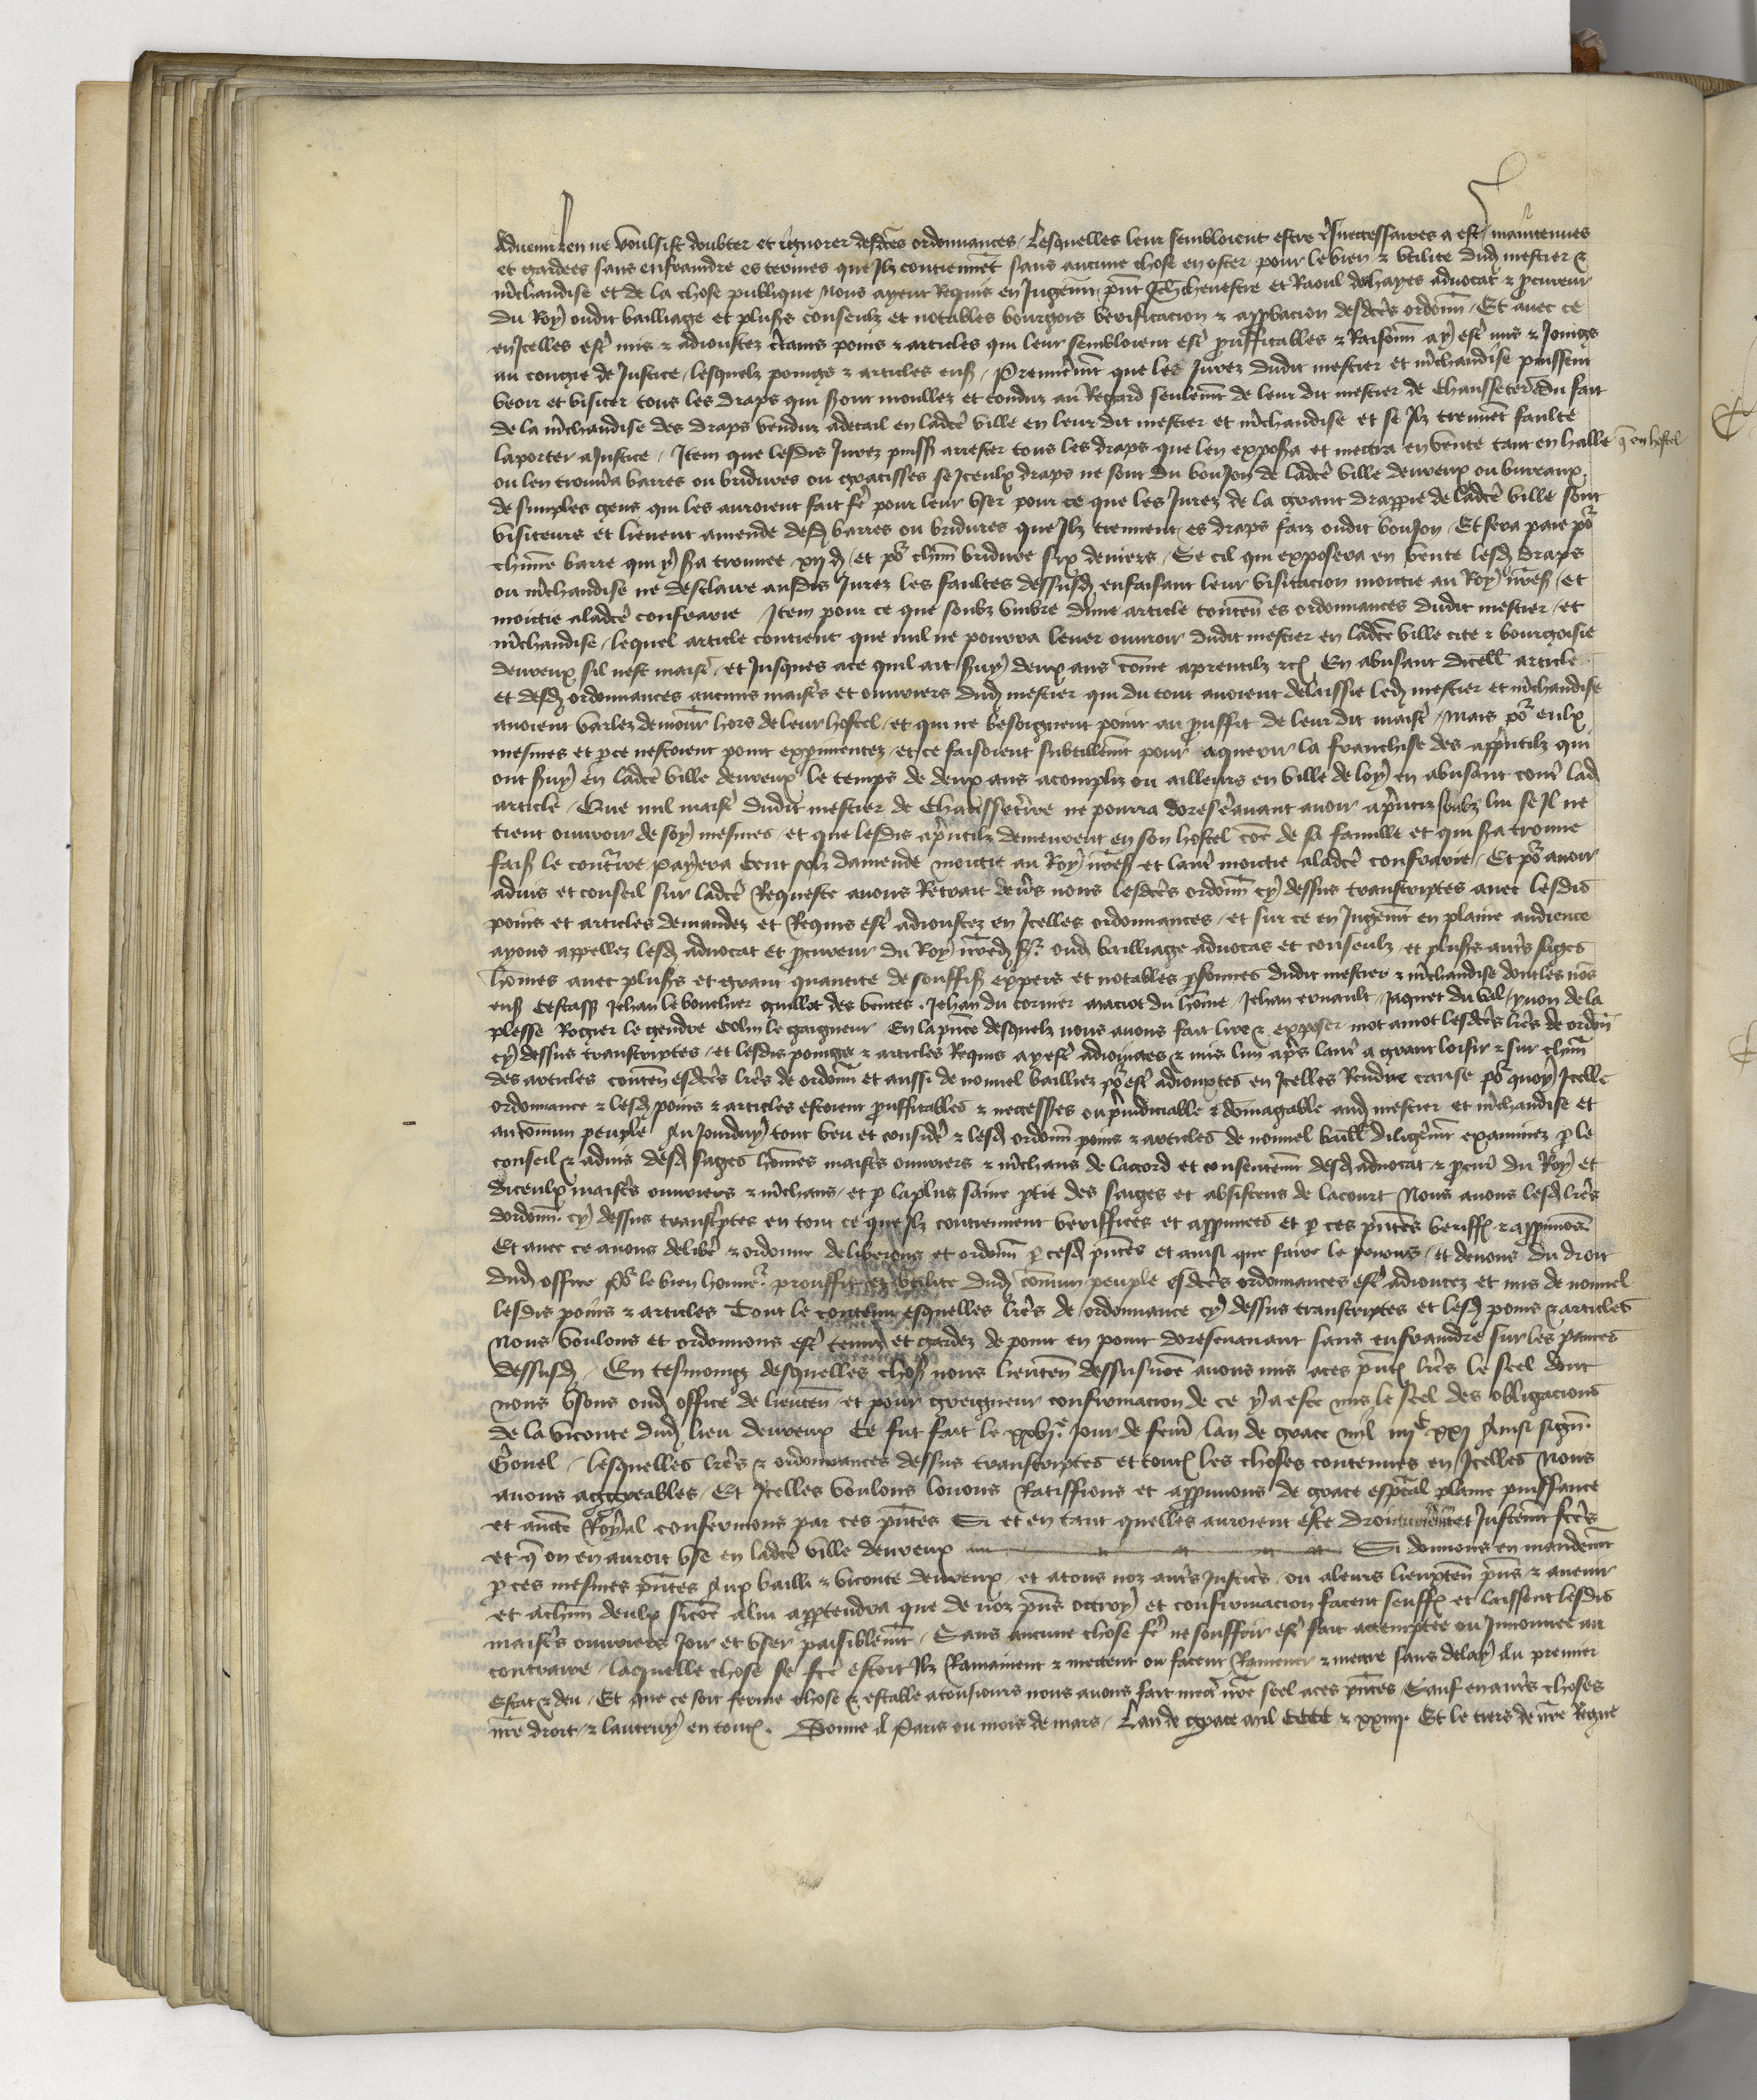 advenir len ne voulsist doubter et ignorer desdctes ordonnances / Lesquelles leur sembloient estre neccessaires a est maintenues
et gardees sans enfraindre es termes que Ilz contiennet sans aucune chose en oster pour le bien & utilite dud mestier &
mchandise et de la chose publique Nous ayent Requis en Jugemt pnt Jeh chenestre et Raoul deshayes advocat & pcureur
du Roy oudit bailliage et plusrs conseulz et notables bourgois verification & appbacion desdctes ordonn / Et avec ce
en Icelles est mis & adioustez ctains poins & articles qui leur sembloient est prouffitables & Raisonn ay est mis & Joings
au congie de Justice / lesquelz poings & articles ens / Premieremt que les Jurez dudit mestier et mchandise puissent
veoir et visiter tous les draps qui sont moullez et tonduz au Regard seulemt de leur dit mestier de Chausseterie & du fait
de la mchandise des draps venduz a detail en ladcte ville en leur dit mestier et mchandise et se Ilz treuvet faulte
laporter a Justice / Item que lesdis Jurez puiss arrester tous les draps que len exposa et mectra en vente tant en halle q en hostel
ou len trouvera barres ou bridures ou gratisses se Iceulx draps ne sont du bouJon de ladcte ville deureux ou bureaux
de simples gens qui les auroient fait fe pour leur user pour ce que les Jurez de la grant drapperie de ladcte ville sont
visiteurs et lievent amende desd barres ou bridures que Ilz treuvent es draps faiz oudit bouJon / Et sera paie po
chune barre qui y sra trouvee xij d / et po chun bridure six deniers / Se cil qui exposera en vente lesd draps
ou mchandise ne desclaire ausdis Jurez les faultes dessusd en faisant leur visitacion moitie au Roy nres / et
moitie a ladcte confrarie Item pour ce que soubz umbre dune article conten es ordonnances dudit mestier / et
mchandise / lequel article contient que nul ne pourra lever ouvroir dudit mestier en ladcte ville cite & bourgoisie
deureux sil nest maist / et Jusques ace quil ait suy deux ans come aprentilz &c En abusant dicell article
et desd ordonnances aucuns maists et ouvriers dud mestier qui du tout avoient delaissie led mestier et mchandise
avoient varlez demour hors de leur hostel / et qui ne besoignent point au pruffit de leur dit maist / Mais po eulx
mesmes et pce nestoient point expimentez / et ce faisoient subtillemt pour aquerir la franchise des apprntilz qui
ont suy en ladcte ville deureux le temps de deux ans acompliz ou ailleurs en ville de loy en abusant cont lad
article / Que nul maist dudit mestier de Chausseterie ne pourra doresenavant avoir aprntiz soubz lui se Il ne
tient ouvroir de soy mesmes / et que lesdis aprntilz demeurent en son hostel coe de sa famille et qui sra trouve
fais le contrire paiera Cent solz damende moitie au Roy nres et laut moitie a ladcte confrarie / Et po avoir
advis et conseil sur ladcte Requeste avons Retrait devrs nous lesdctes ordonn cy dessus transcriptes avec lesdis
poins et articles demandez et Requis est adioustez en Icelles ordonnances / et sur ce en Jugemt en plaine audience
ayons appellez lesd advocat et pcureur du Roy nred sr oud bailliage advocas et conseulz / et plusrs auts sages
homes avec plusrs et grant quantite de souffis expers et notables psonnes dudit mestier & mchandise dont les nos
ens Cestass Jehan le bouchier guillot des ventes. Jehan du cormier maciot du home / Jehan ernault / Jaquet du val / yvon de la
plesse Rogier le gendre Colin le gaigneur En la pnce desquelz nous avons fait lire & exposer mot amot lesdctes lres de ordonn
cy dessus transcriptes / et lesdis poings & articles Requis ay est adioinctes & mis lun aps laut a grant loisir & sur chun
des articles conten esdctes lres de ordonn et aussi de nouvel bailliez po est adiouxtes en Icelles Rendre cause po quoy Icelle
ordonnance & lesd poins & articles estoient pruffitables & necessres ou priudiciable & domagable aud mestier et mchandise et
au comun peuple Au Jourduy tout veu et consider & lesd ordonn poins & articles de nouvel baill diligemt examinez p le
conseil & advis desd sages homes maists ouvriers & mchans de lacord et consentemt desd advocat & pcur du Roy et
diceulx maists ouvriers & mchans / et p la plus saine ptie des saiges et absistens de la court Nous avons lesd lres
dordonn cy dessus transcptes en tout ce que Ilz contiennent veriffiees et approuvees et p ces pntes veriff & approuvons
Et avec ce avons delibe & ordonne deliberons et ordonn p cesd pntes et ainsi que faire le povons / et devons du droit
dud office Po le bien honne prouffit et utilite dud comun peuple esdctes ordonnances est adioutez et mis de nouvel
lesdis poins & articles Tout le contenu esquelles lres de ordonnance cy dessus transcriptes et lesd poins & articles
Nous voulons et ordonnons est tenuz et gardez de point en point doresenavant sans enfraindre sur les paines
dessusd / En tesmoing desquelles chos nous lieuten dessusnome avons mis aces pnt lres le seel dont
nous usons oud office de lieuten / et pour greigneur confirmacion de ce y a este mis le seel des obligacions
de la viconte dud lieu deureux Ce fut fait le xxvje Jour de fevr lan de grace mil iiijc xxj Ainsi sign
Gouel / lesquelles lres & ordonnances dessus transcriptes et tout les choses contenues en Icelles Nous
avons aggreables / Et Icelles voulons louons Ratiffions et approuvons de grace especial plaine puissance
et aucte Royal confermons par ces pntes Si et en tant quelles auroient este et Justemt fctes
et q on en auroit use en ladcte ville deureux Si donnons en mandemt
p ces mesmes pntes Aux bailli & viconte deureux / et atous noz auts Justics / ou aleurs lieuxten pns & avenir
et achun deulx sicoe alui apptendra que de noz pns octroy et confirmacion facent seuff et laissent lesdis
maists ouvriers Jouir et user paisiblemt / Sans aucune chose fe ne souffrir est fait actemptee ou Innovee au
contraire / laquelle chose se fcte estoit Ilz Ramainent & mectent ou facent Ramener & mectre sans delay au premier
Estat & deu / Et que ce soit ferme chose & estable atousiours nous avons fait mect nre seel aces pntes Sauf en auts choses
nre droit & lautruy en tout. Donne A Paris ou mois de mars / Lan de grace mil CCCC & xxiiij. Et le tiers de nre Regne